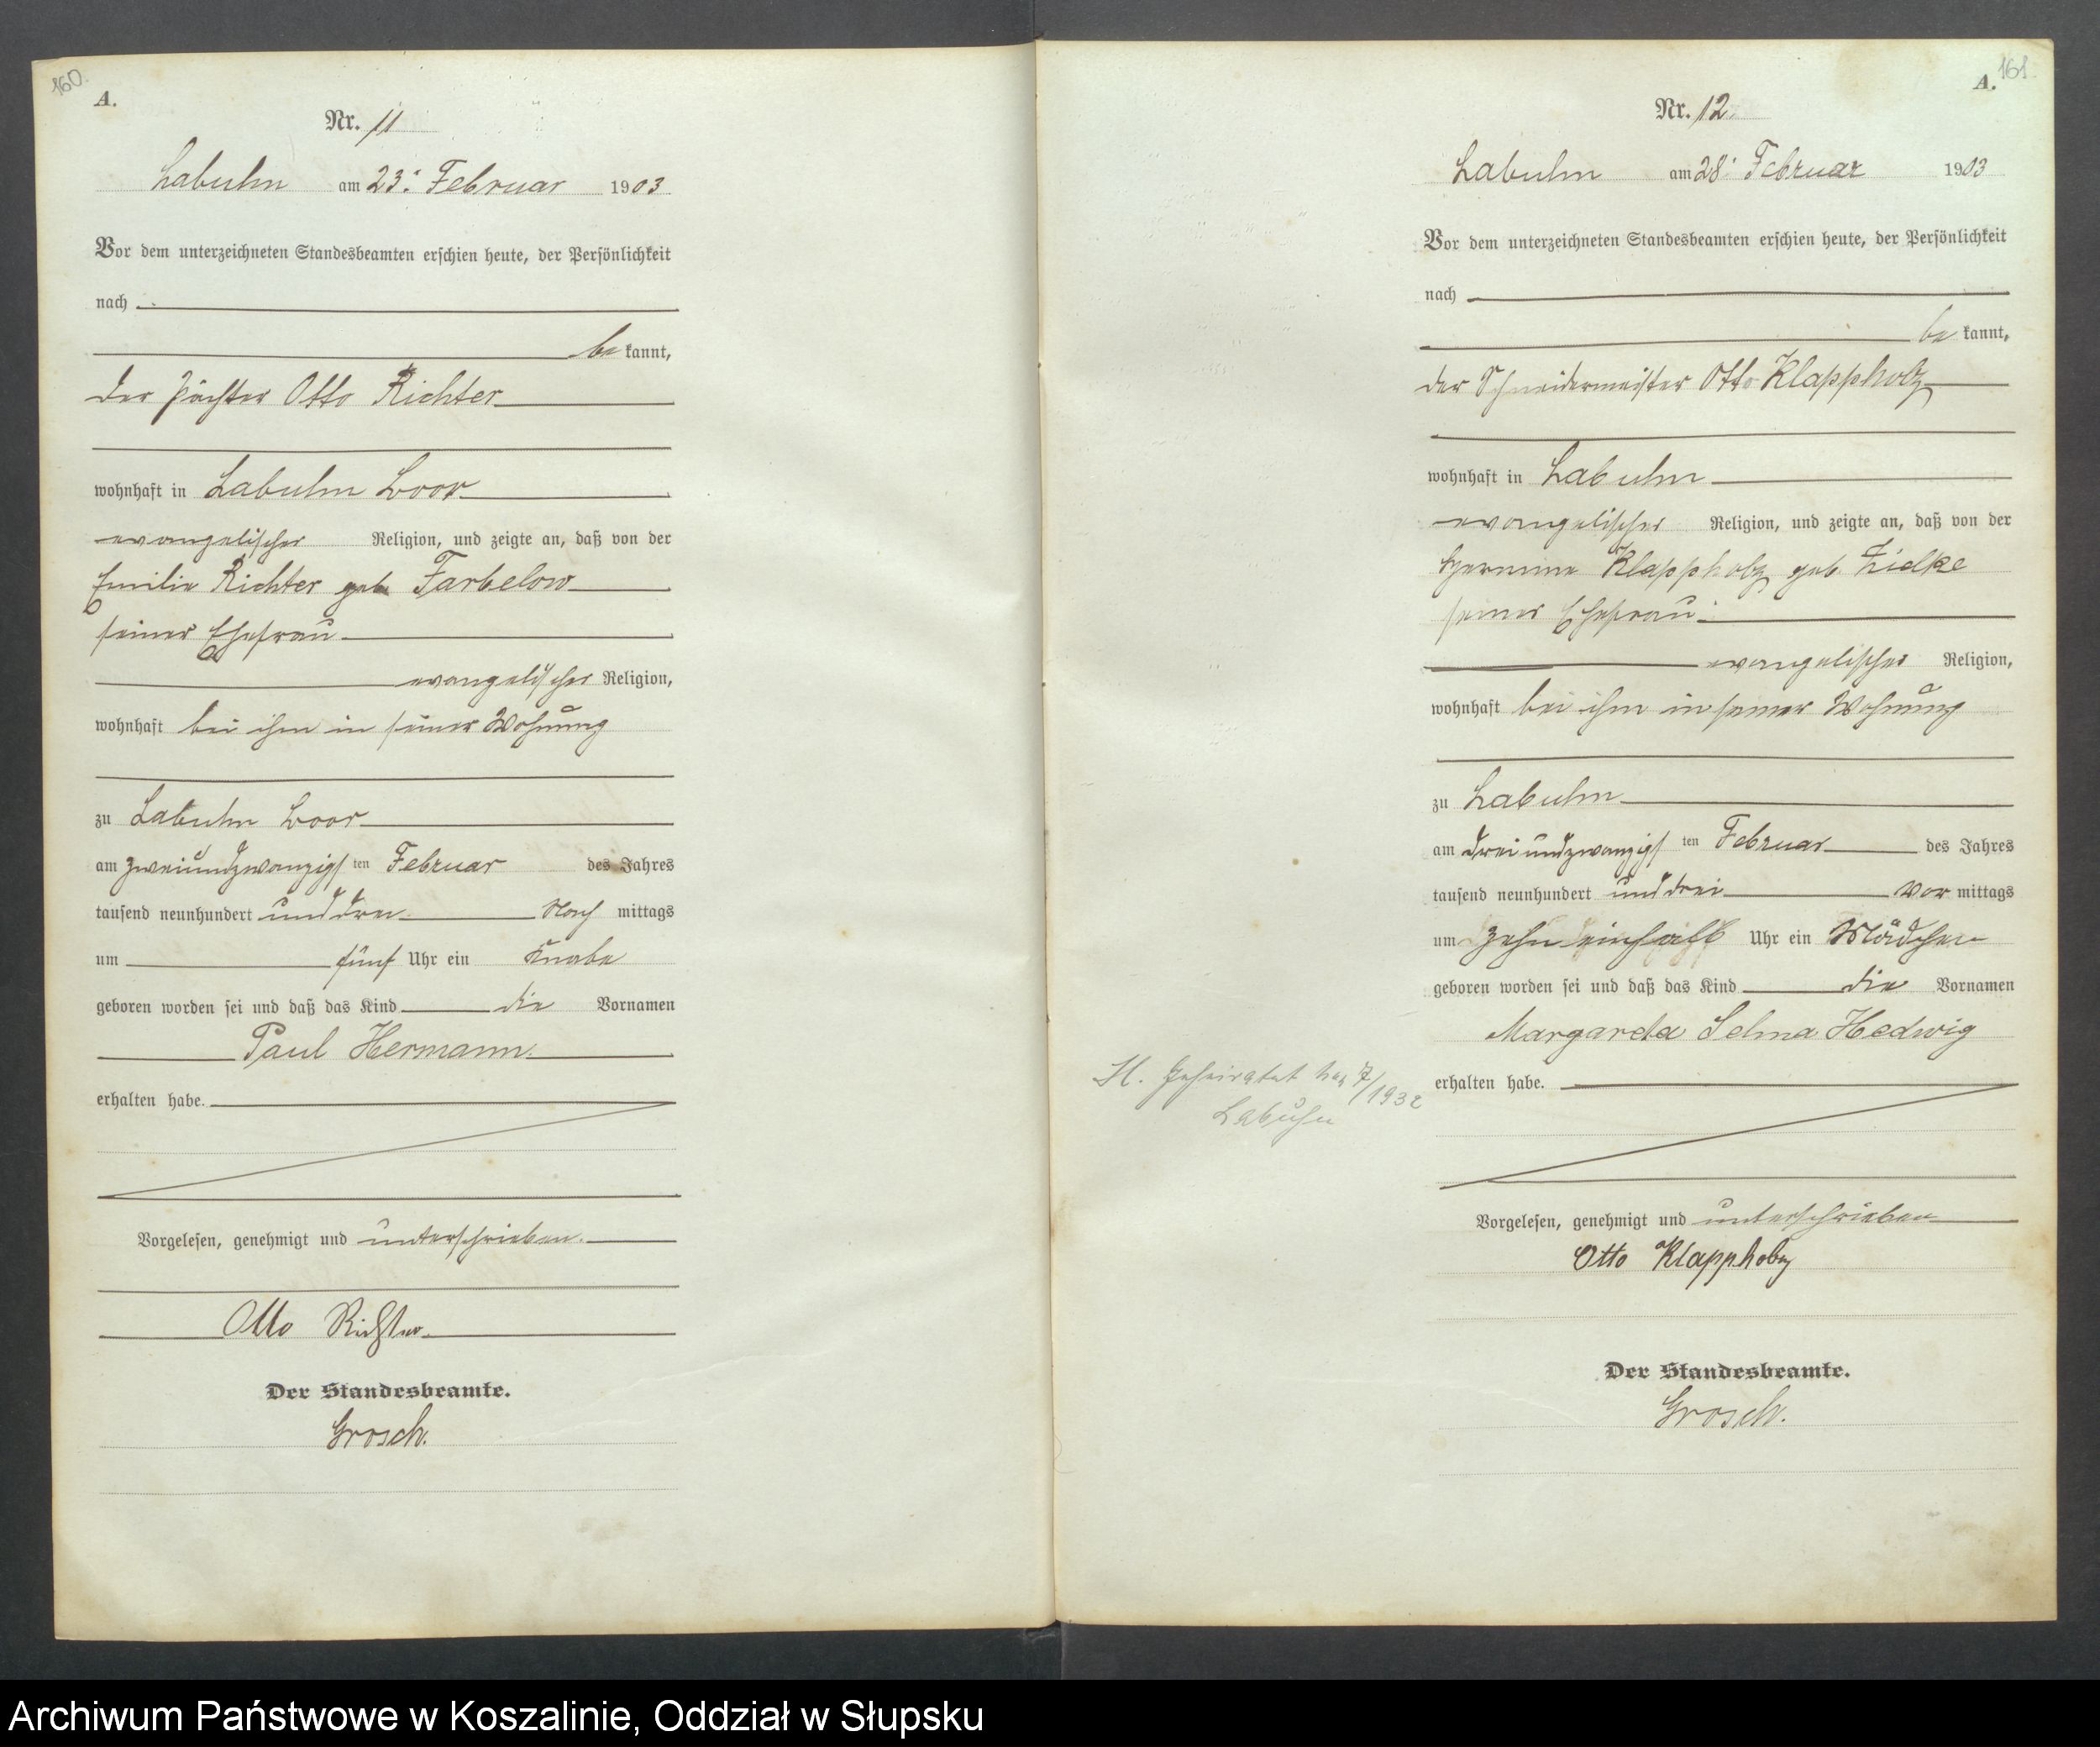 160.
A.
Nr. 11
Labuhn am 23. Februar 1903
Vor dem unterzeichneten Standesbeamten erschien heute, der Persönlichkeit
nach
be kannt,
der Pächter Otto Richter
wohnhaft in Labuhn
evangelischer Religion, und zeigte an, daß von der
Emilie Richter geb. Farbelow
seiner Ehefrau
evangelischer Religion,
wohnhaft bei ihm in seiner Wohnung
zu Labuhn
am zweiundzwanzigs ten Februar des Jahres
tausend neunhundert und drei Nach mittags
um fünf Uhr ein Knabe
geboren worden sei und daß das Kind die Vornamen
Paul Hermann
erhalten habe.
Vorgelesen, genehmigt und unterschrieben.
Otto Richter
Der Standesbeamte.
Grosch.
161.
A.
Nr. 12.
Labuhn am 28. Februar 1903
Vor dem unterzeichneten Standesbeamten erschien heute, der Persönlichkeit
nach
be kannt,
der Schneidermeister Otto Klappholz
wohnhaft in Labuhn
evangelischer Religion, und zeigte an, daß von der
Hermine Klappholz geb. Zidke
seiner Ehefrau
evangelischer Religion,
wohnhaft bei ihm in seiner Wohnung
zu Labuhn
am dreiundzwanzigs ten Februar des Jahres
tausend neunhundert und drei Vor mittags
um zehn einhalb Uhr ein Mädchen
geboren worden sei und daß das Kind die Vornamen
Margareta Selma Hedwig
erhalten habe.
H. Geheiratet 7/1932
Labuhn
Vorgelesen, genehmigt und unterschrieben
Otto Klappholz
Der Standesbeamte.
Grosch.
Archiwum Państwowe w Koszalinie, Oddział w Słupsku